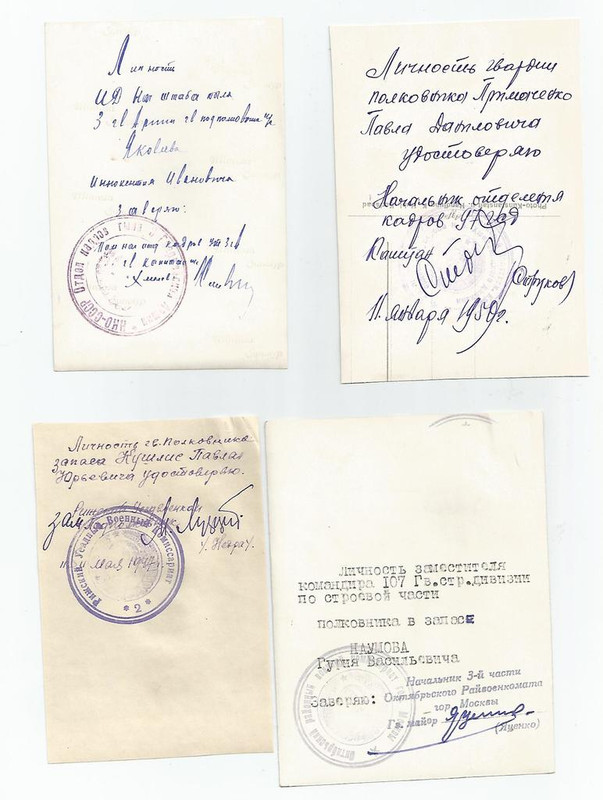 Личность
ИД Нач штаба тыла
3 гв Армии гв подполковника
Яковлева
Иннокентия Ивановича
заверяю:
гв капитан
Личность гвардии
полковника Примаченко
Павла Даниловича
удостоверяю
Начальник отделения
кадров
Капитан
(Стуков)
11 января 1950г.
Личность гв. Полковника
запаса Кушлис Павла
Юрьевича удостоверяю.
зам.
мая 1947г.
Рижский Уездный Военный Комиссариат
* 2 *
Личность заместителя
командира 107 Гв.стр.дивизии
по строевой части
полковника в запасе
НАУМОВА
Гурия Васильевича
Заверяю:
Начальник 3-й части
Октябрьского Райвоенкомата
гор Москвы
Гв. майор
(Яценко)